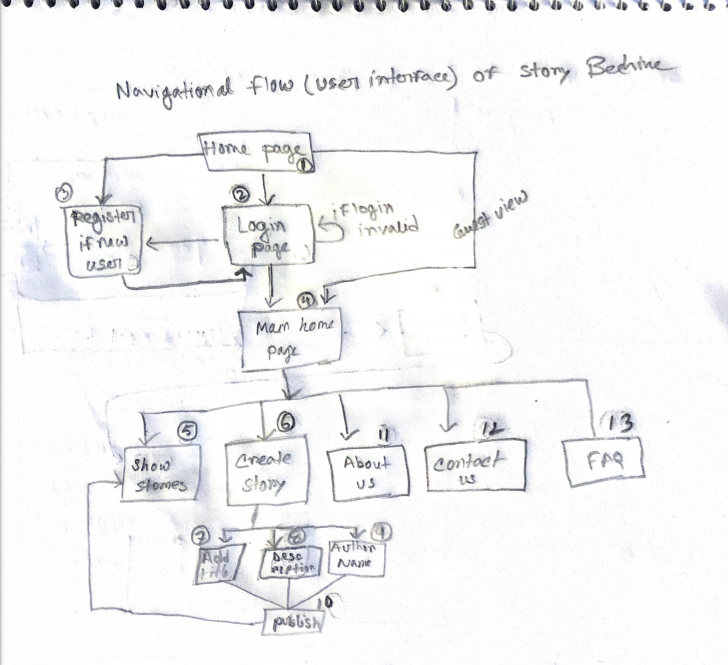 Navigational flow (user interface) of story Beehive
Home page
1
3
2
Register
if new
user
Login
page
if login
invalid
Guest view
4
Main home
page
5
6
11
12
13
Show
stories
Create
story
About
us
Contact
us
FAQ
7
8
9
Add
title
Desc
ription
Author
Name
10
publish